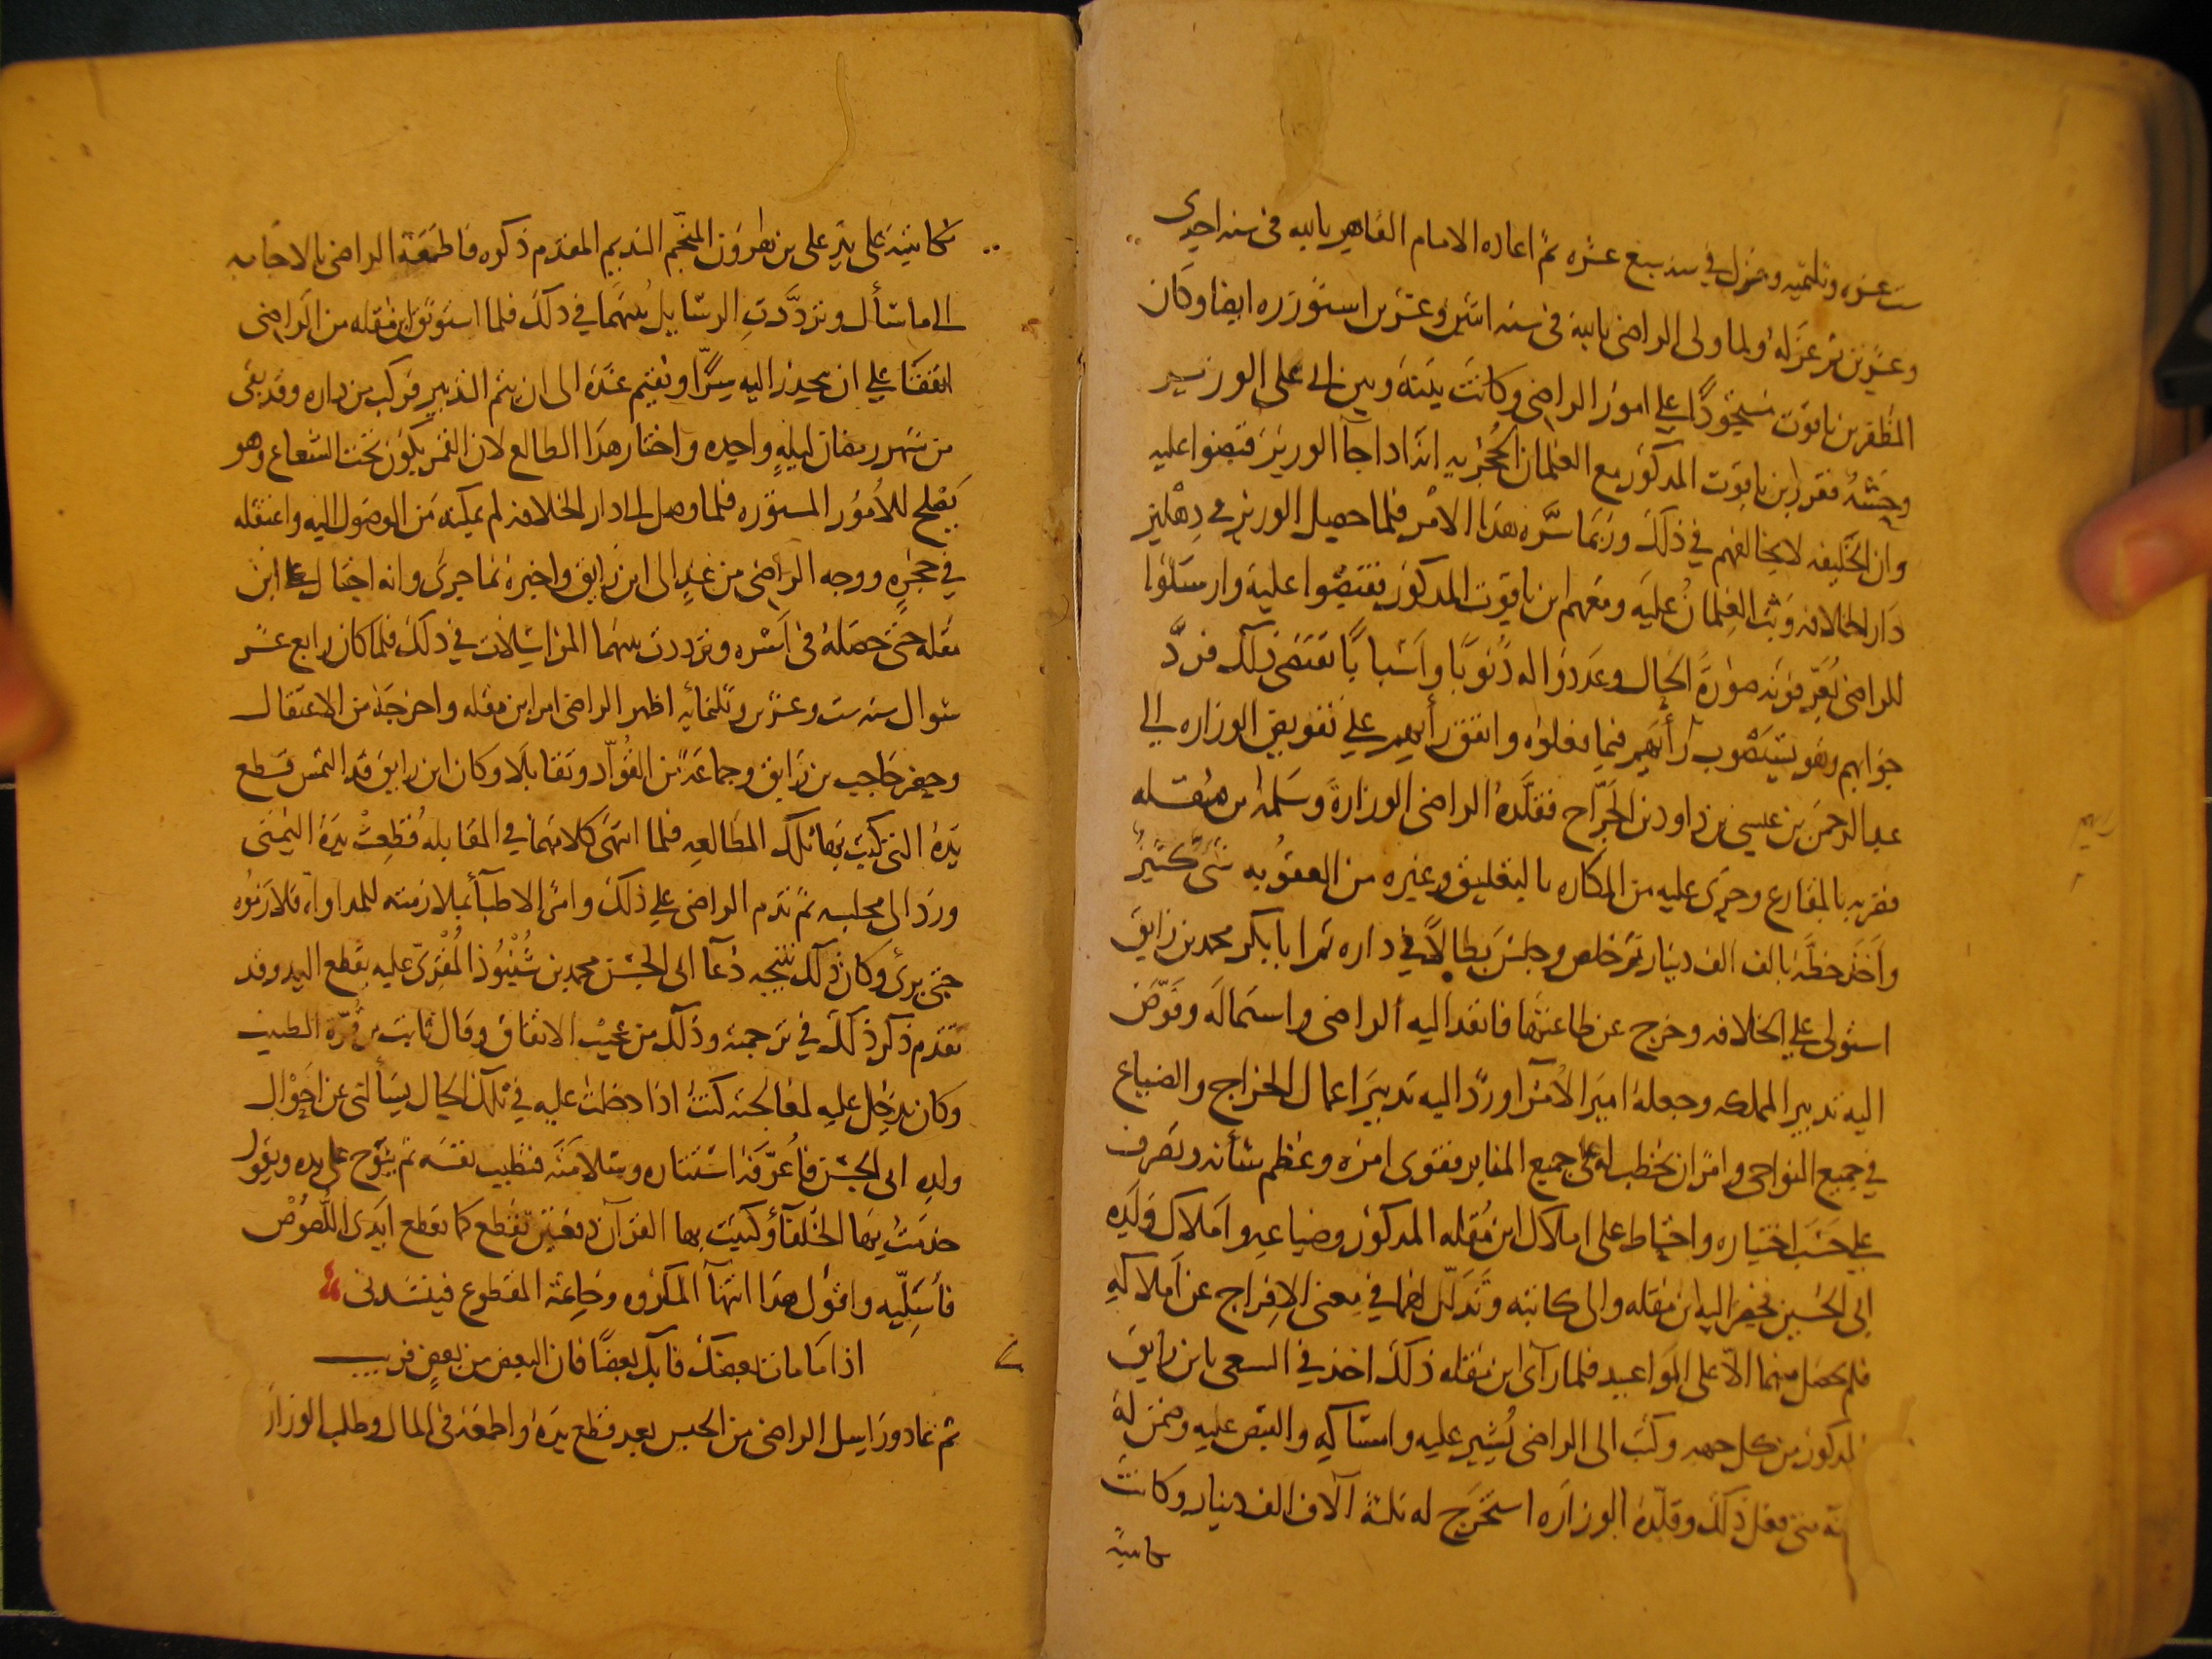 ست عشره وثلثمايه وعزل في سنه سبع عشره ثم اعاده الامام القاهر بالله في سنه احدى
وعشرين ثم عزله ولما ولى الراضى بالله فى سنه اثنين وعشرين استوزره ايضا وكان
المظفر بن ياقوت مستحوذا على امور الراضى وكانت بينه وبين ابى على الوزير
وحشه فقرر ابن ياقوت المدكور مع الغلمان الحجريه انه اذا جآ الوزير قبضوا عليه
وان الخليفه لا يخالفهم في ذلك وربما سره هذا الامر فلما حصل الوزير فى دهليز
دار الخلافه وثب الغلمان عليه ومعهم ابن ياقوت المدكور فقبضوا عليه وارسلوا
للراضى يعرفونه صورة الحال وعددوا له ذنوبا واسبابا تقتضى ذلك فرد
جوابهم وهو يستصوب رأيهم فيما فعلوه واتفق رأيهم على تفويض الوزاره الى
عبد الرحمن بن عيسى بن داود بن الجراح فقلده الراضى الوزارة وسلم له ابن مقله
فضربه بالمقارع وجرى عليه من المكاره بالتعليق وغيره من العقوبه شى كثير
واخذ خطه بالف الف دينار ثم خلص وجلس بطالا في داره ثم ان ابا بكر محمد بن رايق
استولى على الخلافه وخرج عن طاعتها فانفذ اليه الراضى واستماله وفوض
اليه تدبير المملكه وجعله امير الامرآ ورد اليه تدبير اعمال الخراج والضياع
في جميع النواحى وامر ان يخطب له على جميع المنابر فقوى امره وعظم شأنه وتصرف
على حسب اختياره واحتاط على املاك ابن مقله المدكور وضياعه واملاك ولده
ابى الحسين فحضر اليه ابن مقله والى كاتبه وتذلل لهما في معنى الافراج عن املاكه
فلم يحصل منهما الا على المواعيد فلما رآى ابن مقله ذلك اخذ في السعى بابن رايق
المدكور من كل جهه وكتب الى الراضى يشير عليه بامساكه والقبض عليه وضمن له
انه متى فعل ذلك وقلده الوزاره استخرج له ثلثة آلاف الف دينار وكانت
مكاتبته
مكاتبته على يد على بن هرون المنجم النديم المقدم ذكره فاطمعه الراضى بالاجابه
الى ما سأل وترددت الرسايل بينهما في ذلك فلما استوثق ابن مقله من الراضى
اتفقا على ان يحدر اليه سرا ويقيم عنده الى ان يتم التدبير فركب من داره وقد بقى
من شهر رمضان ليله واحده واختار هذا الطالع لان القمر يكون تحت الشعاع وهو
يصلح للامور المستوره فلما وصل الى دار الخلافه لم يمكنه من الوصول اليه واعتقله
في حجره ووجه الراضى من غد الى ابن رايق واخبره بما جرى وانه احتال على ابن
مقله حتى حصله فى اسره وترددت بينهما المراسلات في ذلك فلما كان رابع عشر
شوال سنه ست وعشرين وثلثمايه اظهر الراضى امر ابن مقله واخرجه من الاعتقال
وحضر حاجب بن رايق وجماعة من القواد وتقابلا وكان ابن رايق قد التمس قطع
يده التى كتب بها تلك المطالعه فلما انتهى كلامهما في المقابله قطعت يده اليمنى
ورد الى محبسه ثم ندم الراضى على ذلك وامر الاطبآ بملازمته للمداواه فلازموه
حتى برئ وكان ذلك نتيجه دعآ ابى الحسن محمد بن شنبوذ المقرى عليه بقطع اليد وقد
تقدم ذكر ذلك في ترجمته وذلك من عجيب الاتفاق وقال ثابت بن قره الطبيب
وكان يدخل عليه لمعالجته كنت اذا دخلت عليه في تلك الحال يسألنى عن احوال
ولده ابى الحسين فاعرفه استتاره وسلامته فتطيب نفسه ثم ينوح على يده ويقول
خدمت بها الخلفآ وكتبت بها القرآن دفعتين تقطع كما تقطع ايدى اللصوص
فأسليه واقول هذا انتهآ المكروه وخاتمة المقطوع فينشدنى
اذا ما مات بعضك فابك بعضا فان البعض من بعض قريب
ثم عاد وراسل الراضى من الحبس بعد قطع يده واطمعه فى المال وطلب الوزاره